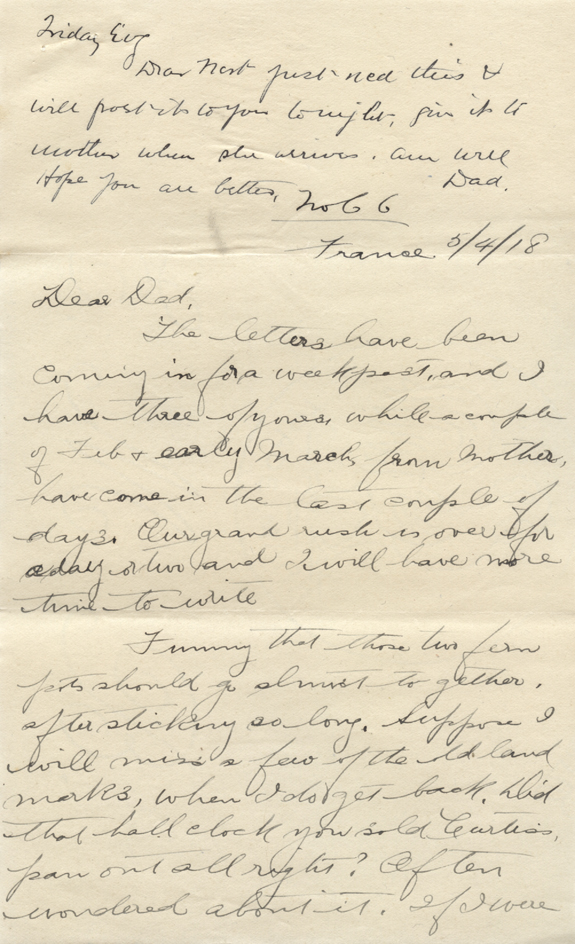 Friday Evg
Dear Nort just rec'd this &
will post it to you tonight, give it to
mother when she arrives. am well
Hope you are better. Dad.
No 66
France 5/4/18
Dear Dad,
The letters have been
coming in for a week past, and I
have three of yours, while a couple
of Feb & early March, from Mother,
have come in the last couple of
days. Our grand rush is over for
a day or two and I will have more
time to write
Funny that those two fern
pots should go almost to gether,
after sticking so long. Suppose I
will miss a few of the old land
marks, when I do get back. Did
that hall clock you sold Curtiss,
pan out all right? Often
wondered about it. If I were